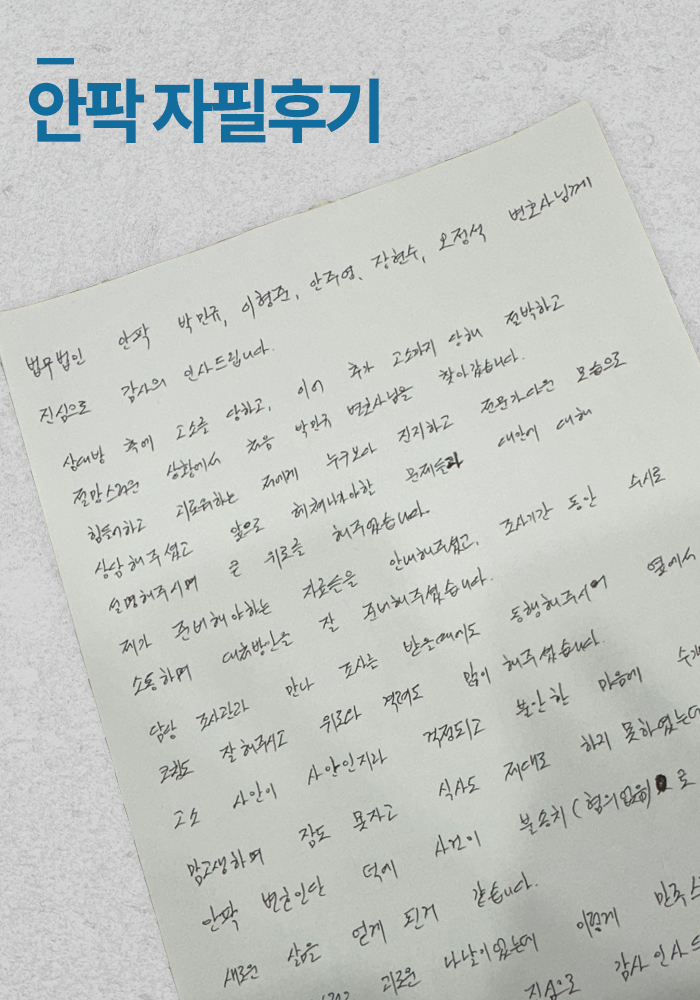 안팍 자필후기
법무법인 안팍 박민규, 이형준, 안주영, 장현수, 오정석 변호사님께
진심으로 감사의 인사드립니다.
상대방 측에 고소를 당하고, 이어 추가 고소까지 당해 절박하고
절망스러운 상황에서 처음 박민규 변호사님을 찾아갔습니다.
힘들어하고 괴로워하는 저에게 누구보다 진지하고 전문가다운 모습으로
상담해주셨고 앞으로 헤쳐나가야할 문제들과 대안에 대해
설명해주시며 큰 위로를 해주었습니다.
제가 준비해야하는 자료들을 안내해주셨고, 조사기간 동안 수시로
소통하며 대응방안을 잘 준비해주셨습니다.
담당 조사관과 만나 조사를 받을때에도 동행해주시어 옆에서
코칭도 잘해주시고 위로와 격려도 많이 해주셨습니다.
고소 사안이 사안인지라 걱정되고 불안한 마음에
맘고생하며 잠도 못자고 식사도 제대로 하지 못하였는데
안팍 변호인단 덕에 사건이 불송치(혐의없음)로
새로운 삶을 얻게 된거 같습니다.
괴로운 나날이었는데 이렇게
진심으로 감사인사드